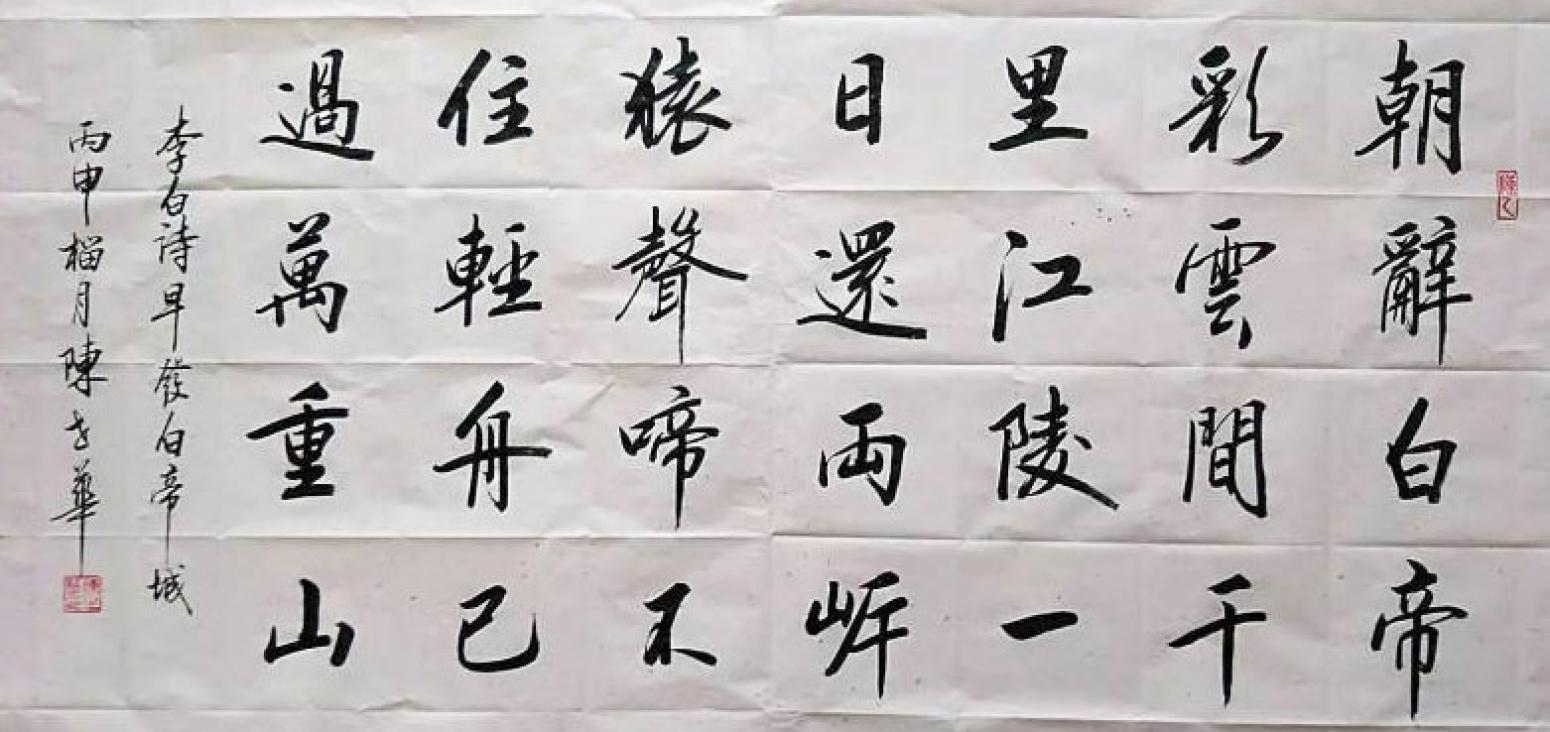 朝辭白帝
彩雲間千
里江陵一
日還兩岸
猿聲啼不
住輕舟已
過萬重山
李白詩早發白帝城
丙申榴月陳志華